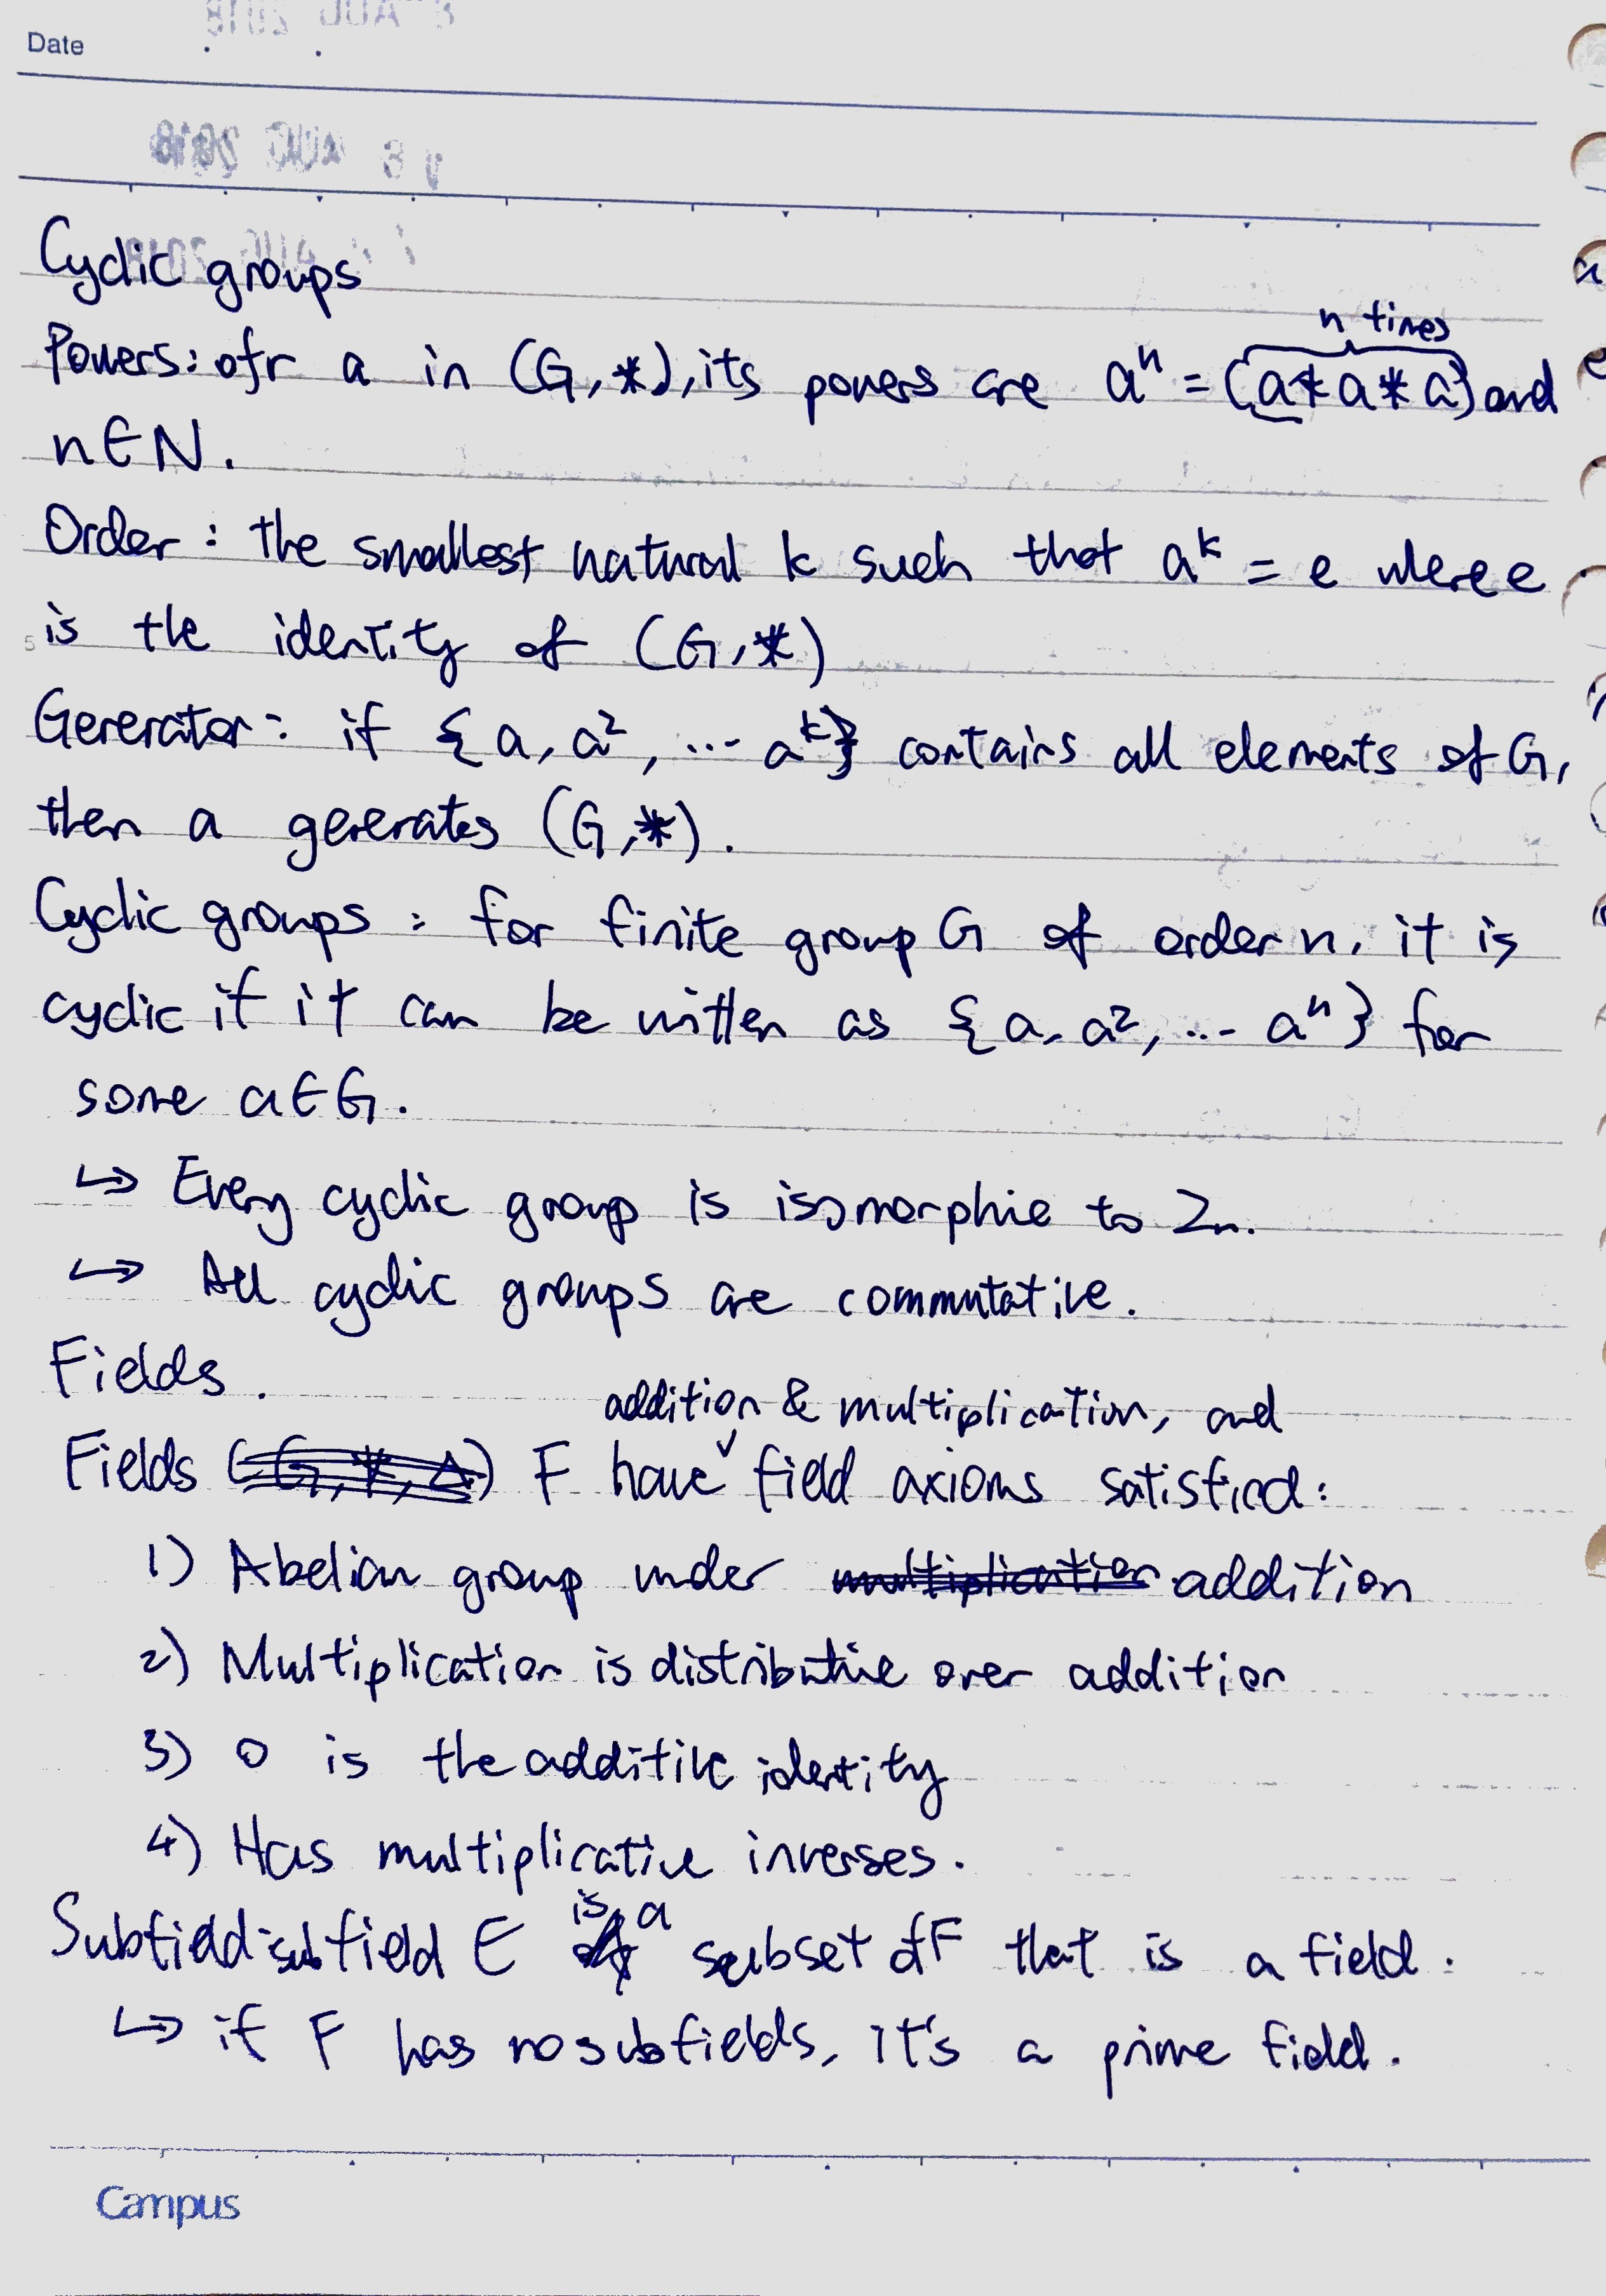 Date
Cyclic groups
n times
Powers: ofr a in (G,*), its powers are aⁿ = (a*a*a) and
n∈N.
Order: the smallest natural k such that aᵏ = e where e
is the identity of (G,*)
Generator: if {a, a², ... aᵏ} contains all elements of G,
then a generates (G,*).
Cyclic groups: for finite group G of order n, it is
cyclic if it can be written as {a, a², ... aⁿ} for
some a∈G.
↳ Every cyclic group is isomorphic to Zn.
↳ All cyclic groups are commutative.
Fields.
addition & multiplication, and
Fields (G,*,△) F have field axioms satisfied:
1) Abelian group under multiplication addition
2) Multiplication is distributive over addition
3) 0 is the additive identity
4) Has multiplicative inverses.
is a
Subfield: subfield E subset of F that is a field.
↳ if F has no subfields, it's a prime field.
Campus